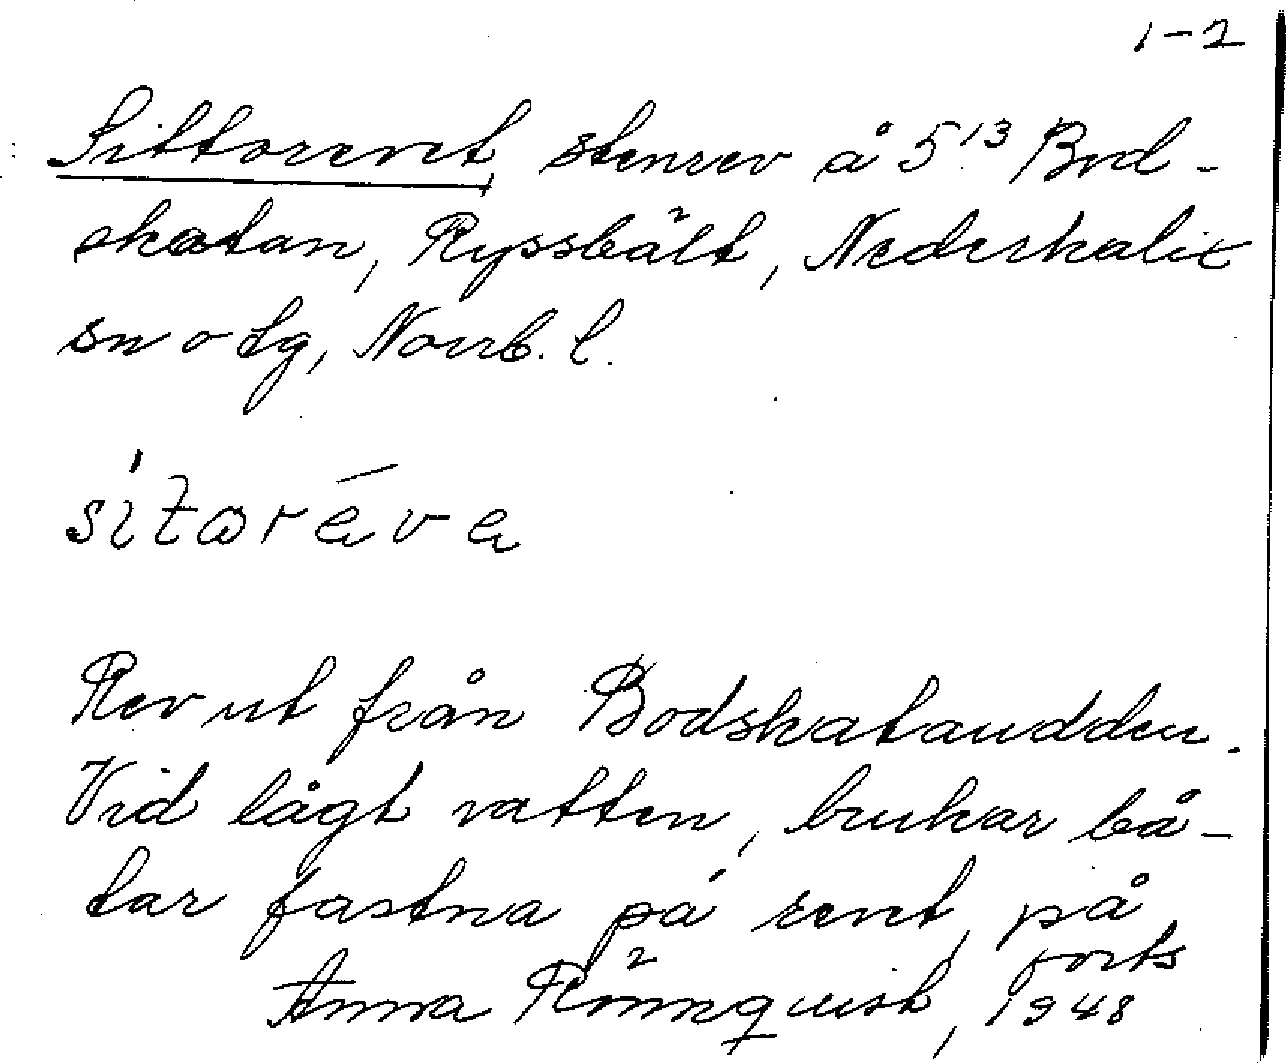 1-2
Sittorevet, stenrev å 5¹³ Bod-
skatan, Ryssbält, Nederkalix
sn o tg, Norrb. l.
Rev ut från Bodskataudden.
Vid lågt vatten, brukar bå-
tar fastna på revet, på
forts
Anna Rönnqvist, 1948